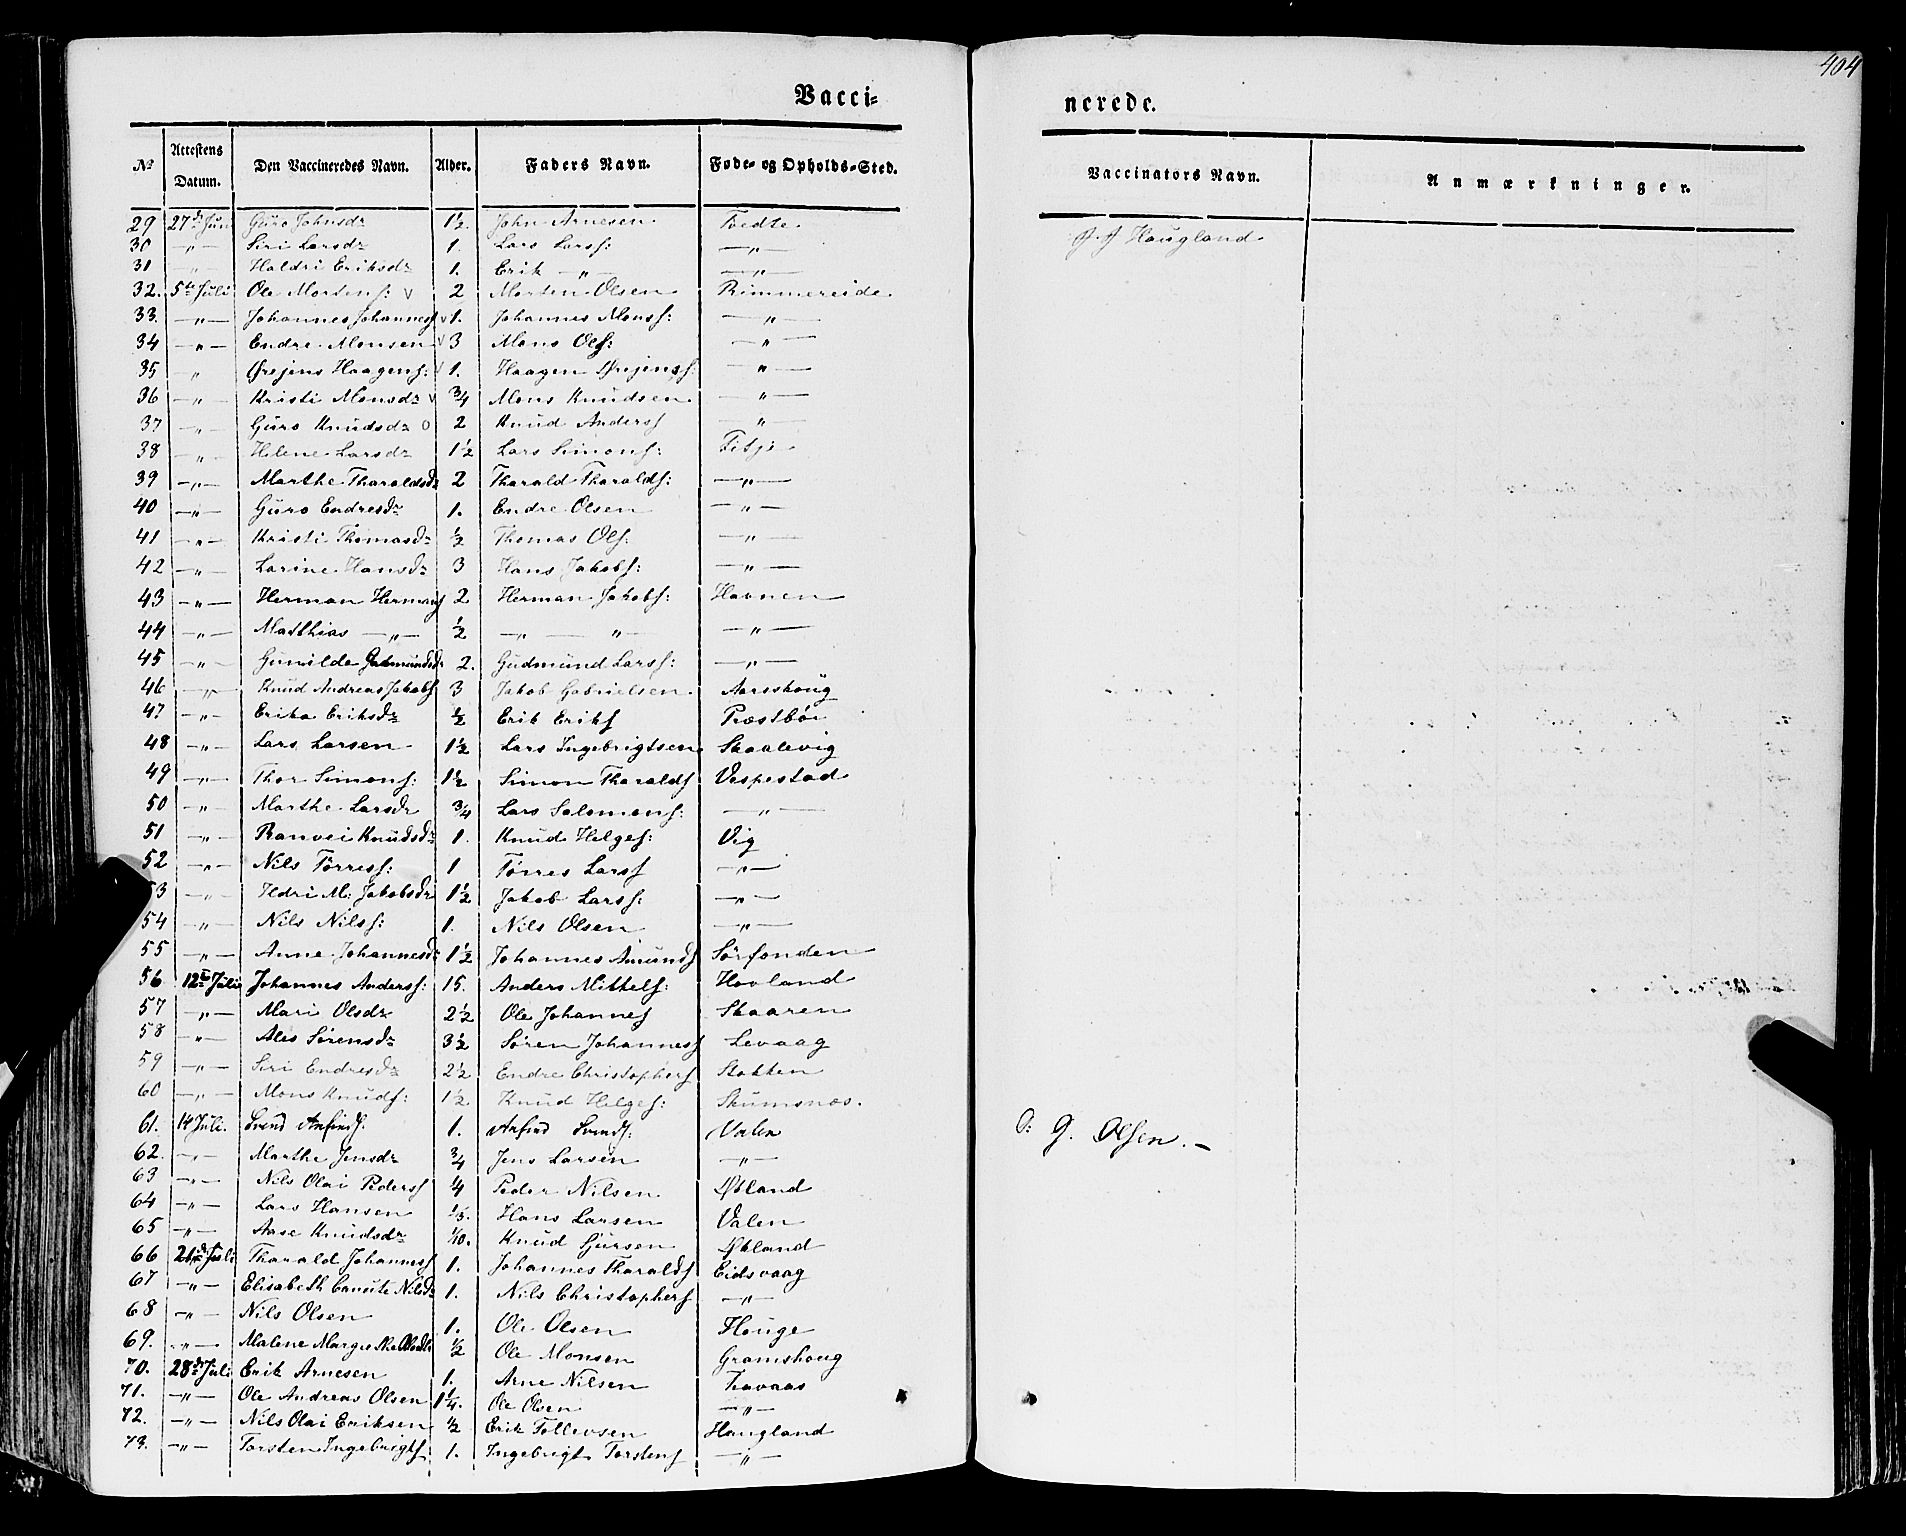 404
Vacci-
nerede.
No Attestens Datum. Den Vaccineredes Navn. Alder. Faders Navn. Føde- og Opholds-Sted. Vaccinators Navn. Anmærkninger.
29 27de Juni Guro Johnsdr 1½ John Arnesen Tvedte J. J Haugland
30 -„- Siri Larsdr 1. Lars Larss: -„-
31 -„- Haldri Eriksdr 1. Erik -„- -„-
32. 5te Juli Ole Mortens: v 2 Morten Olsen Rimmereide
33. -„- Johannes Johanness v 1. Johannes Monss: -„-
34 -„- Endre Monsen v 3 Mons Ols: -„-
35 „ Ørjens Haagens: v 1. Haagen Ørjenss: -„-
36 -„- Kristi Monsdr v ¾ Mons Knudsen -„-
37 -„- Guro Knudsdr o 2 Knud Anderss -„-
38 -„- Helene Larsdr 1½ Lars Simons: Fitje
39 -„- Marthe Tharaldsdr 2 Tharald Tharalds: -„-
40 -„- Guro Endresdr 1. Endre Olsen -„-
41 -„- Kristi Thomasdr ½ Thomas Ols: -„-
42 -„- Larine Hansdr 3 Hans Jakobs: -„-
43 -„- Herman Hermans 2 Herman Jakobs: Havnen
44 -„- Matthias -„- ½ -„- „- -„-
45 -„- Gunilde Gudmundsdr 2. Gudmund Larss: -„-
46 -„- Knud Andreas Jakobs 3 Jakob Gabrielsen Aarskoug
47 -„- Erika Eriksdr ½ Erik Eriks Præstbøe
48 -„- Lars Larsen 1½ Lars Ingebrigtsen Skaalevig
49 -„- Thor Simons: 1½ Simon Tharalds Vespestad
50 -„- Marthe Larsdr ¾ Lars Salomons: -„-
51 -„- Ranvei Knudsdr 1. Knud Helges: Vig
52 -„- Nils Tørress: 1 Tørres Larss -„-
53 -„- Ildri M: Jakobsdr 1½ Jakob Larss: -„-
54 -„- Nils Nilss: 1. Nils Olsen -„-
55 -„- Anne Johannesdr 1½ Johannes Amunds Sørfonden
56 12te Juli Johannes Anderss: 15. Anders Mikkels: Hovland
57 -„- Mari Olsdr 2½ Ole Johannes Skaaren
58 -„- Ales Sørensdr 3½ Søren Johanness Levaag
59 -„- Siri Endresdr 2½ Endre Christophers Stokken
60 -„- Mons Knuds: 1½ Knud Helges: Skumsnæs.
61. 14 Juli. Svend Anfinds: 1. Anfind Svends: Valen O: J. Olsen. -
62. -„- Marthe Jensdr ¾ Jens Larsen -„-
63 -„- Nils Olai Peders ¼ Peder Nilsen Økland
64 -„- Lars Hansen ⅕. Hans Larsen Valen
65 -„- Aase Knudsdr 1/10. Knud Gjursen Økland
66 21de Juli Tharald Johanness 1. Johannes Tharalds Eidsvaag
67 -„- Elisabeth Canute Nilsdr 1. Nils Christophers -„-
68 -„- Nils Olsen 1. Ole Olsen Houge
69. -„- Malene Margrethe Olsdr ½ Ole Monsen Gramshoug
70. 28de Juli Erik Arnesen 1. Arne Nilsen
71. -„- Ole Andreas Olsen 1¼. Ole Olsen -„-
72. -„- Nils Olai Eriksen ½ Erik Tollevsen Haugland
73. -„- Torsten Ingebrigts 1. Ingebrigt Torstens -„-